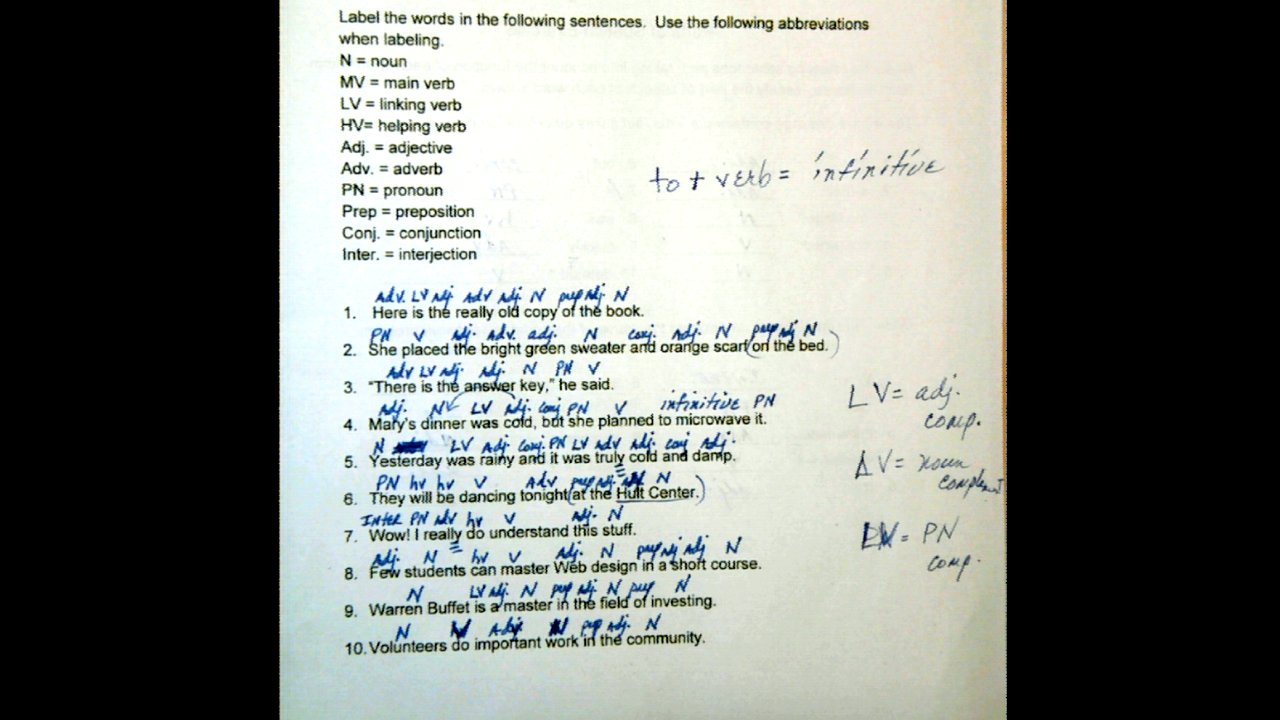 Label the words in the following sentences. Use the following abbreviations
when labeling.
N = noun
MV = main verb
LV = linking verb
HV= helping verb
Adj. = adjective
Adv. = adverb
PN = pronoun
to + verb = infinitive
Prep = preposition
Conj. = conjunction
Inter. = interjection
Adv. LV adj Adv Adj N prep adj. N
1. Here is the really old copy of the book.
PN V Adj. Adv. adj. N conj. Adj. N prep adj N
2. She placed the bright green sweater and orange scarf (on the bed.)
Adv LV adj. Adj. N PN V
3. "There is the answer key," he said.
Adj. N LV adj. conj PN V infinitive PN
4. Mary's dinner was cold, but she planned to microwave it.
LV = adj. comp.
N LV Adj. conj. PN LV Adv Adj. conj Adj.
5. Yesterday was rainy and it was truly cold and damp.
LV = noun
PN hv hv V Adv prep adj. N
6. They will be dancing tonight (at the Hult Center.)
Inter PN adv hv V adj. N
7. Wow! I really do understand this stuff.
= PN comp.
Adj. N hv V Adj. N prep adj adj N
8. Few students can master Web design in a short course.
N LV adj. N prep adj. N prep N
9. Warren Buffet is a master in the field of investing.
N V Adj. N prep adj. N
10. Volunteers do important work in the community.